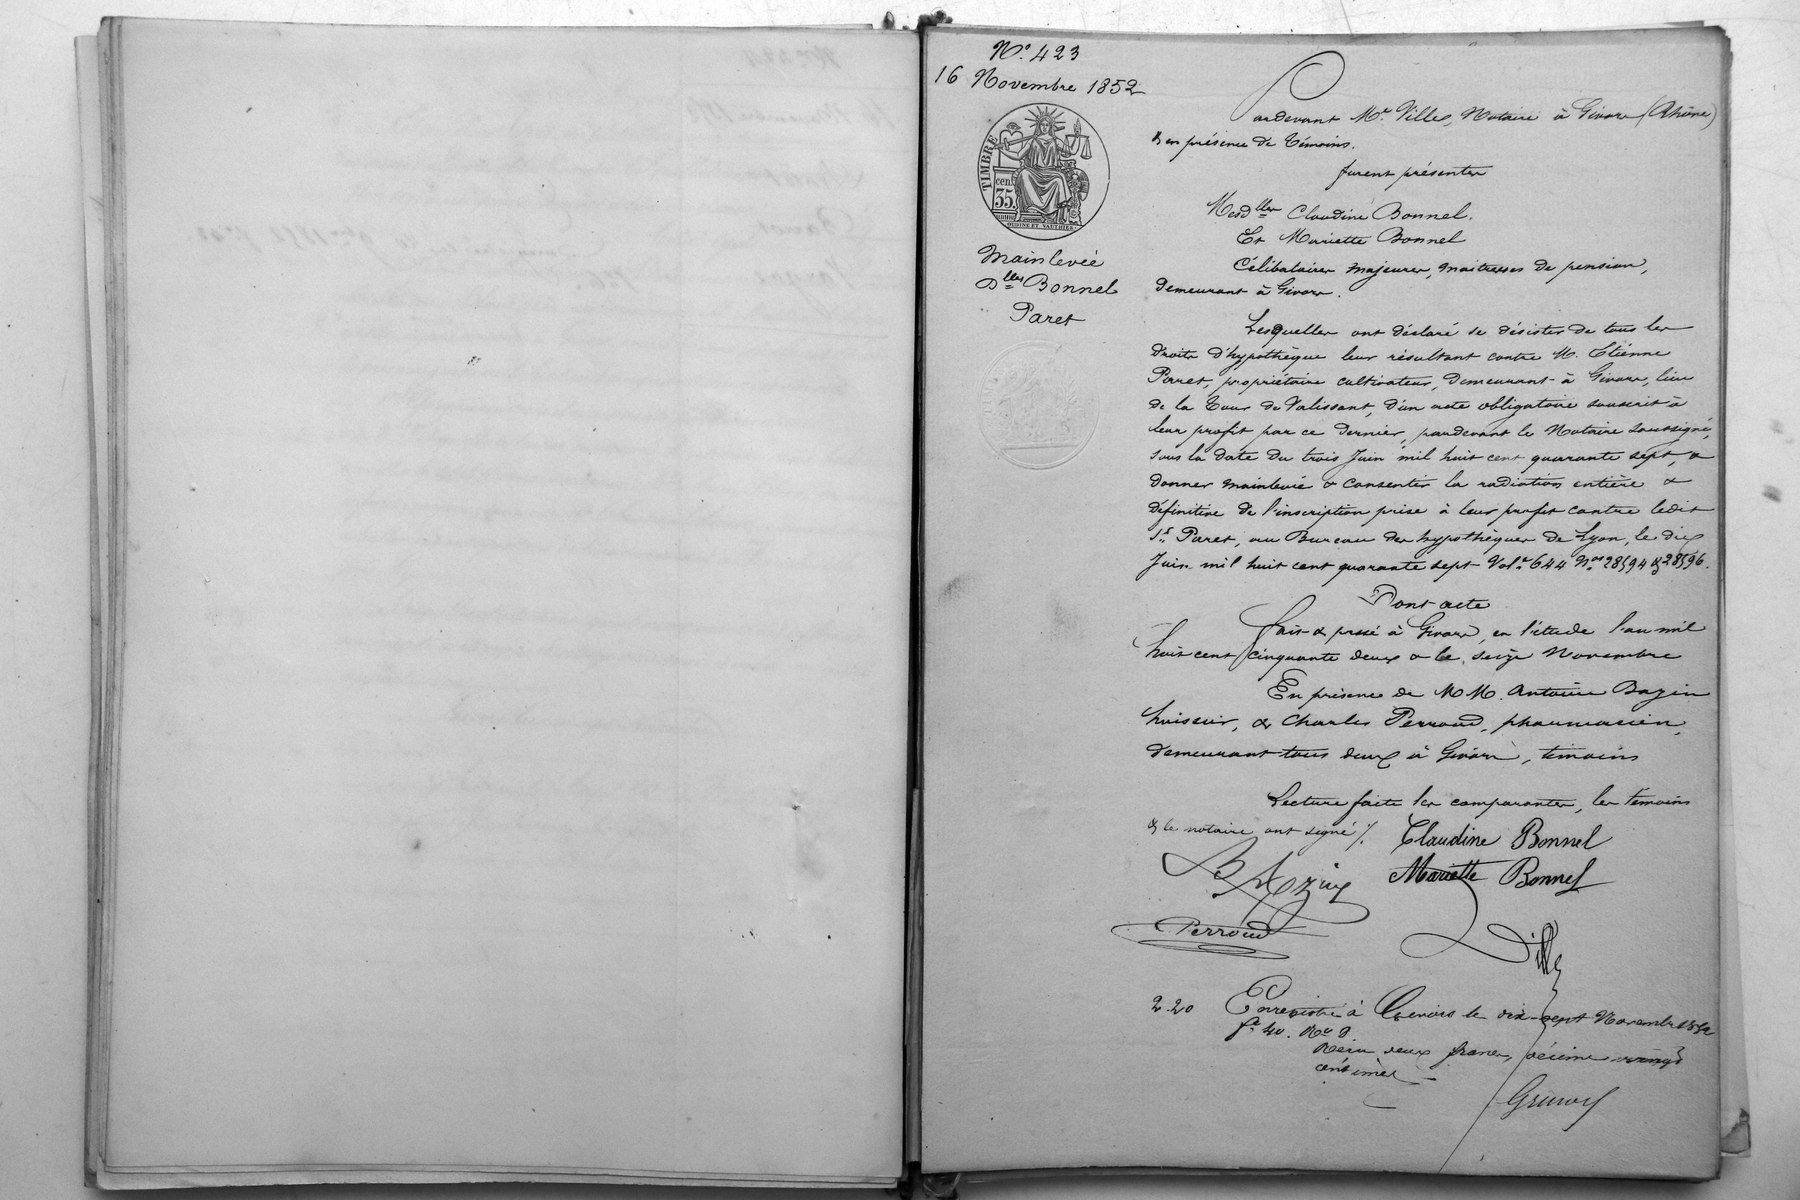 N.º 423
16 Novembre 1852
TIMBRE
cen.
35.
OUDINÉ ET VAUTHIER
Mainlevée
Dlles Bonnel
Paret
Pardevant Me. Ville, Notaire à Givors (Rhône)
& en présence de Témoins.
furent présentes
Mesdlles Claudine Bonnel,
Et Mariette Bonnel
Célibataires majeures, maitresses de pension,
demeurant à Givors.
Lesquelles ont déclaré se désister de tous les
droits d'hypothèque leur résultant contre M. Etienne
Paret, propriétaire cultivateur, demeurant à Givors, lieu
de la Tour de Valissant, d'un acte obligatoire souscrit à
leur profit par ce dernier, pardevant le Notaire soussigné,
sous la date du trois Juin mil huit cent quarante sept, &
donner mainlevée & consentir la radiation entière &
définitive de l'inscription prise à leur profit contre ledit
Sr. Paret, au Bureau des hypothèques de Lyon, le dix
Juin mil huit cent quarante sept Vole. 644 Nos 28594 & 28596.
Dont acte
fait & passé à Givors, en l'étude l'an mil
huit cent cinquante deux & le seize Novembre
En présence de MM. Antoine Bazin
huissier, & Charles Perroud, pharmacien,
demeurant tous deux à Givors, témoins
Lecture faite les comparantes, les témoins
& le notaire ont signé ./.
Claudine Bonnel
Bazin
Mariette Bonnel
Perroud
Ville
2.20 Enregistré à Givors le dix-sept Novembre 1852
fo. 40. Ro 9
Reçu deux francs, décime vingt
centimes